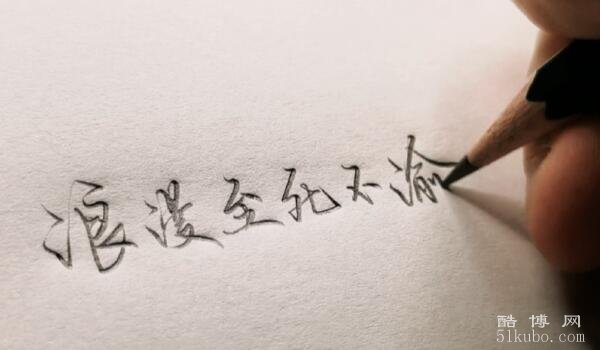 浪漫至死不渝
酷博网
51kubo.com